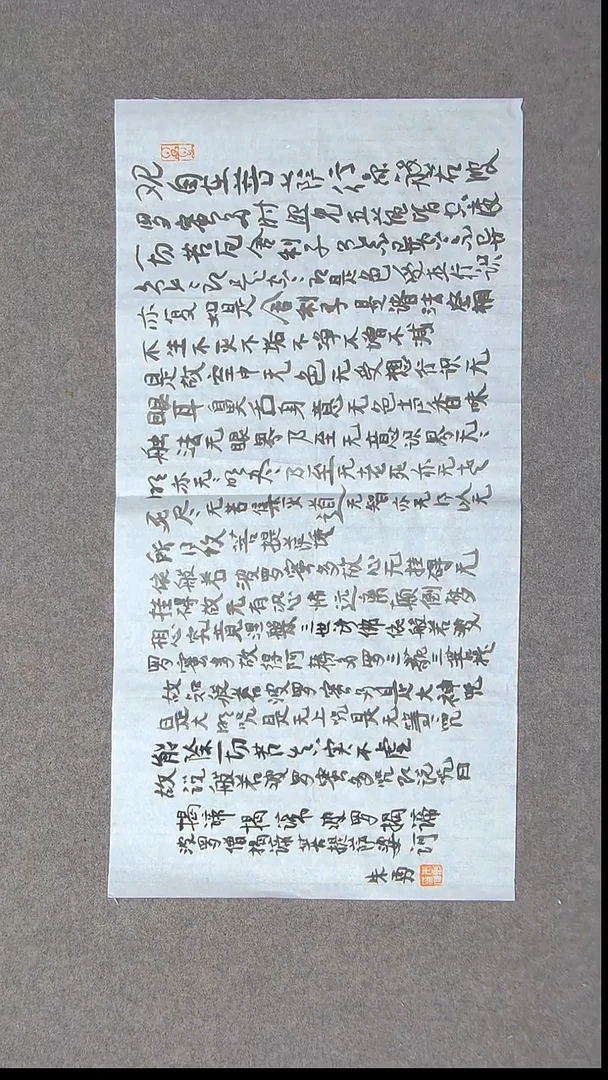 观自在菩萨行深般若波
罗蜜多时照见五蕴皆空度
一切苦厄舍利子色不异空空不异
色色即是空空即是色受想行识
亦复如是舍利子是诸法空相
不生不灭不垢不净不增不减
是故空中无色无受想行识无
眼耳鼻舌身意无色声香味
触法无眼界乃至无意识界无无
明亦无无明尽乃至无老死亦无老
死尽无苦集灭道无智亦无得以无
所得故菩提萨埵
依般若波罗蜜多故心无挂碍无
挂碍故无有恐怖远离颠倒梦
想究竟涅槃三世诸佛依般若波
罗蜜多故得阿耨多罗三藐三菩提
故知般若波罗蜜多是大神咒
是大明咒是无上咒是无等咒
能除一切苦真实不虚
故说般若波罗蜜多咒即说咒曰
揭谛揭谛波罗揭谛
波罗僧揭谛菩提萨婆诃
朱勇